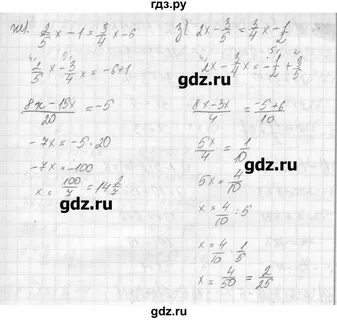 гдз.ру
ж) 2/5 x - 1 = 3/4 x - 6
2/5 x - 3/4 x = -6+1
(8x - 15x)/20 = -5
-7x = -5 · 20
-7x = -100
x = 100/7 = 14 2/7
з) 2x - 3/5 = 3/4 x - 1/2
2x - 3/4 x = -1/2 + 3/5
(8x - 3x)/4 = (-5+6)/10
5x/4 = 1/10
5x = 4/10
x = 4/10 : 5
x = 4/10 · 1/5
x = 4/50 = 2/25
gdz.ru
gdz.ru
gdz.ru
gdz.ru
gdz.ru
gdz.ru